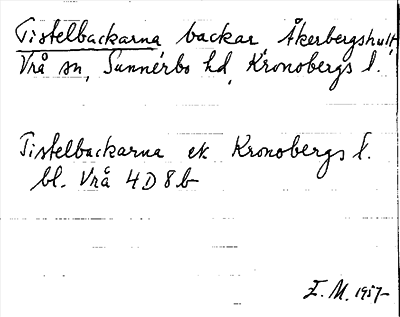 Tistelbackarna, backar, Åkerbergshult,
Vrå sn, Sunnerbo hd, Kronobergs l.
Tistelbackarna ek Kronobergs l.
bl. Vrå 4D8b
E.M. 1957